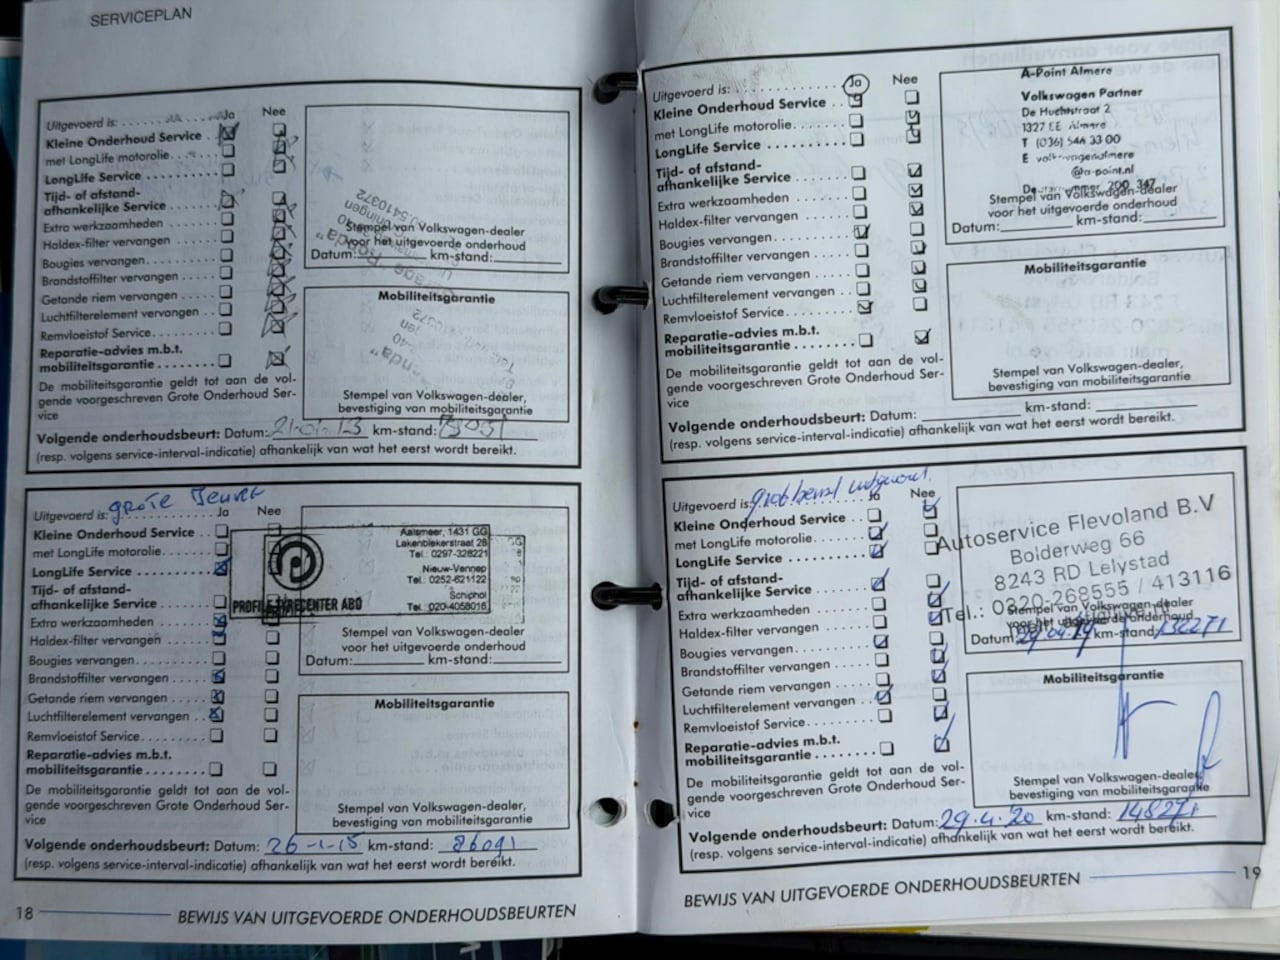 SERVICEPLAN
Uitgevoerd is:
Ja Nee
Kleine Onderhoud Service
met LongLife motorolie
LongLife Service
Tijd- of afstand-
afhankelijke Service
Extra werkzaamheden
Haldex-filter vervangen
Bougies vervangen
Brandstoffilter vervangen
Getande riem vervangen
Luchtfilterelement vervangen
Remvloeistof Service
Reparatie-advies m.b.t.
mobiliteitsgarantie
De mobiliteitsgarantie geldt tot aan de vol-
gende voorgeschreven Grote Onderhoud Ser-
vice
Stempel van Volkswagen-dealer
voor het uitgevoerde onderhoud
Datum: km-stand:
Mobiliteitsgarantie
Stempel van Volkswagen-dealer,
bevestiging van mobiliteitsgarantie
Volgende onderhoudsbeurt: Datum: km-stand:
(resp. volgens service-interval-indicatie) afhankelijk van wat het eerst wordt bereikt.
grote
Uitgevoerd is:
Ja Nee
Kleine Onderhoud Service
met LongLife motorolie
LongLife Service
Tijd- of afstand-
afhankelijke Service
Extra werkzaamheden
Haldex-filter vervangen
Bougies vervangen
Brandstoffilter vervangen
Getande riem vervangen
Luchtfilterelement vervangen
Remvloeistof Service
Reparatie-advies m.b.t.
mobiliteitsgarantie
De mobiliteitsgarantie geldt tot aan de vol-
gende voorgeschreven Grote Onderhoud Ser-
vice
Aalsmeer, 1431 GG
Lakenblekerstraat 28
Tel.: 0297-328221
Nieuw-Vennep
Tel.: 0252-621122
Schiphol
Tel.: 020-4058016
PROFILE TYRECENTER ABO
Stempel van Volkswagen-dealer
voor het uitgevoerde onderhoud
Datum: km-stand:
Mobiliteitsgarantie
Stempel van Volkswagen-dealer,
bevestiging van mobiliteitsgarantie
Volgende onderhoudsbeurt: Datum: 26-1-15 km-stand: 86091
(resp. volgens service-interval-indicatie) afhankelijk van wat het eerst wordt bereikt.
18 BEWIJS VAN UITGEVOERDE ONDERHOUDSBEURTEN
Uitgevoerd is:
Ja Nee
Kleine Onderhoud Service
met LongLife motorolie
LongLife Service
Tijd- of afstand-
afhankelijke Service
Extra werkzaamheden
Haldex-filter vervangen
Bougies vervangen
Brandstoffilter vervangen
Getande riem vervangen
Luchtfilterelement vervangen
Remvloeistof Service
Reparatie-advies m.b.t.
mobiliteitsgarantie
De mobiliteitsgarantie geldt tot aan de vol-
gende voorgeschreven Grote Onderhoud Ser-
vice
A-Point Almere
Volkswagen Partner
De Huchtstraat 2
1327 EE Almere
T (036) 546 33 00
@a-point.nl
Stempel van Volkswagen-dealer
voor het uitgevoerde onderhoud
Datum: km-stand:
Mobiliteitsgarantie
Stempel van Volkswagen-dealer,
bevestiging van mobiliteitsgarantie
Volgende onderhoudsbeurt: Datum: km-stand:
(resp. volgens service-interval-indicatie) afhankelijk van wat het eerst wordt bereikt.
Uitgevoerd is:
Ja Nee
Kleine Onderhoud Service
met LongLife motorolie
LongLife Service
Tijd- of afstand-
afhankelijke Service
Extra werkzaamheden
Haldex-filter vervangen
Bougies vervangen
Brandstoffilter vervangen
Getande riem vervangen
Luchtfilterelement vervangen
Remvloeistof Service
Reparatie-advies m.b.t.
mobiliteitsgarantie
De mobiliteitsgarantie geldt tot aan de vol-
gende voorgeschreven Grote Onderhoud Ser-
vice
Autoservice Flevoland B.V
Bolderweg 66
8243 RD Lelystad
Tel.: 0320-268555 / 413116
Stempel van Volkswagen-dealer
voor het uitgevoerde onderhoud
Datum: 29.04.19 km-stand:
Mobiliteitsgarantie
Stempel van Volkswagen-dealer,
bevestiging van mobiliteitsgarantie
Volgende onderhoudsbeurt: Datum: 29.4.20 km-stand: 148271
(resp. volgens service-interval-indicatie) afhankelijk van wat het eerst wordt bereikt.
BEWIJS VAN UITGEVOERDE ONDERHOUDSBEURTEN 19